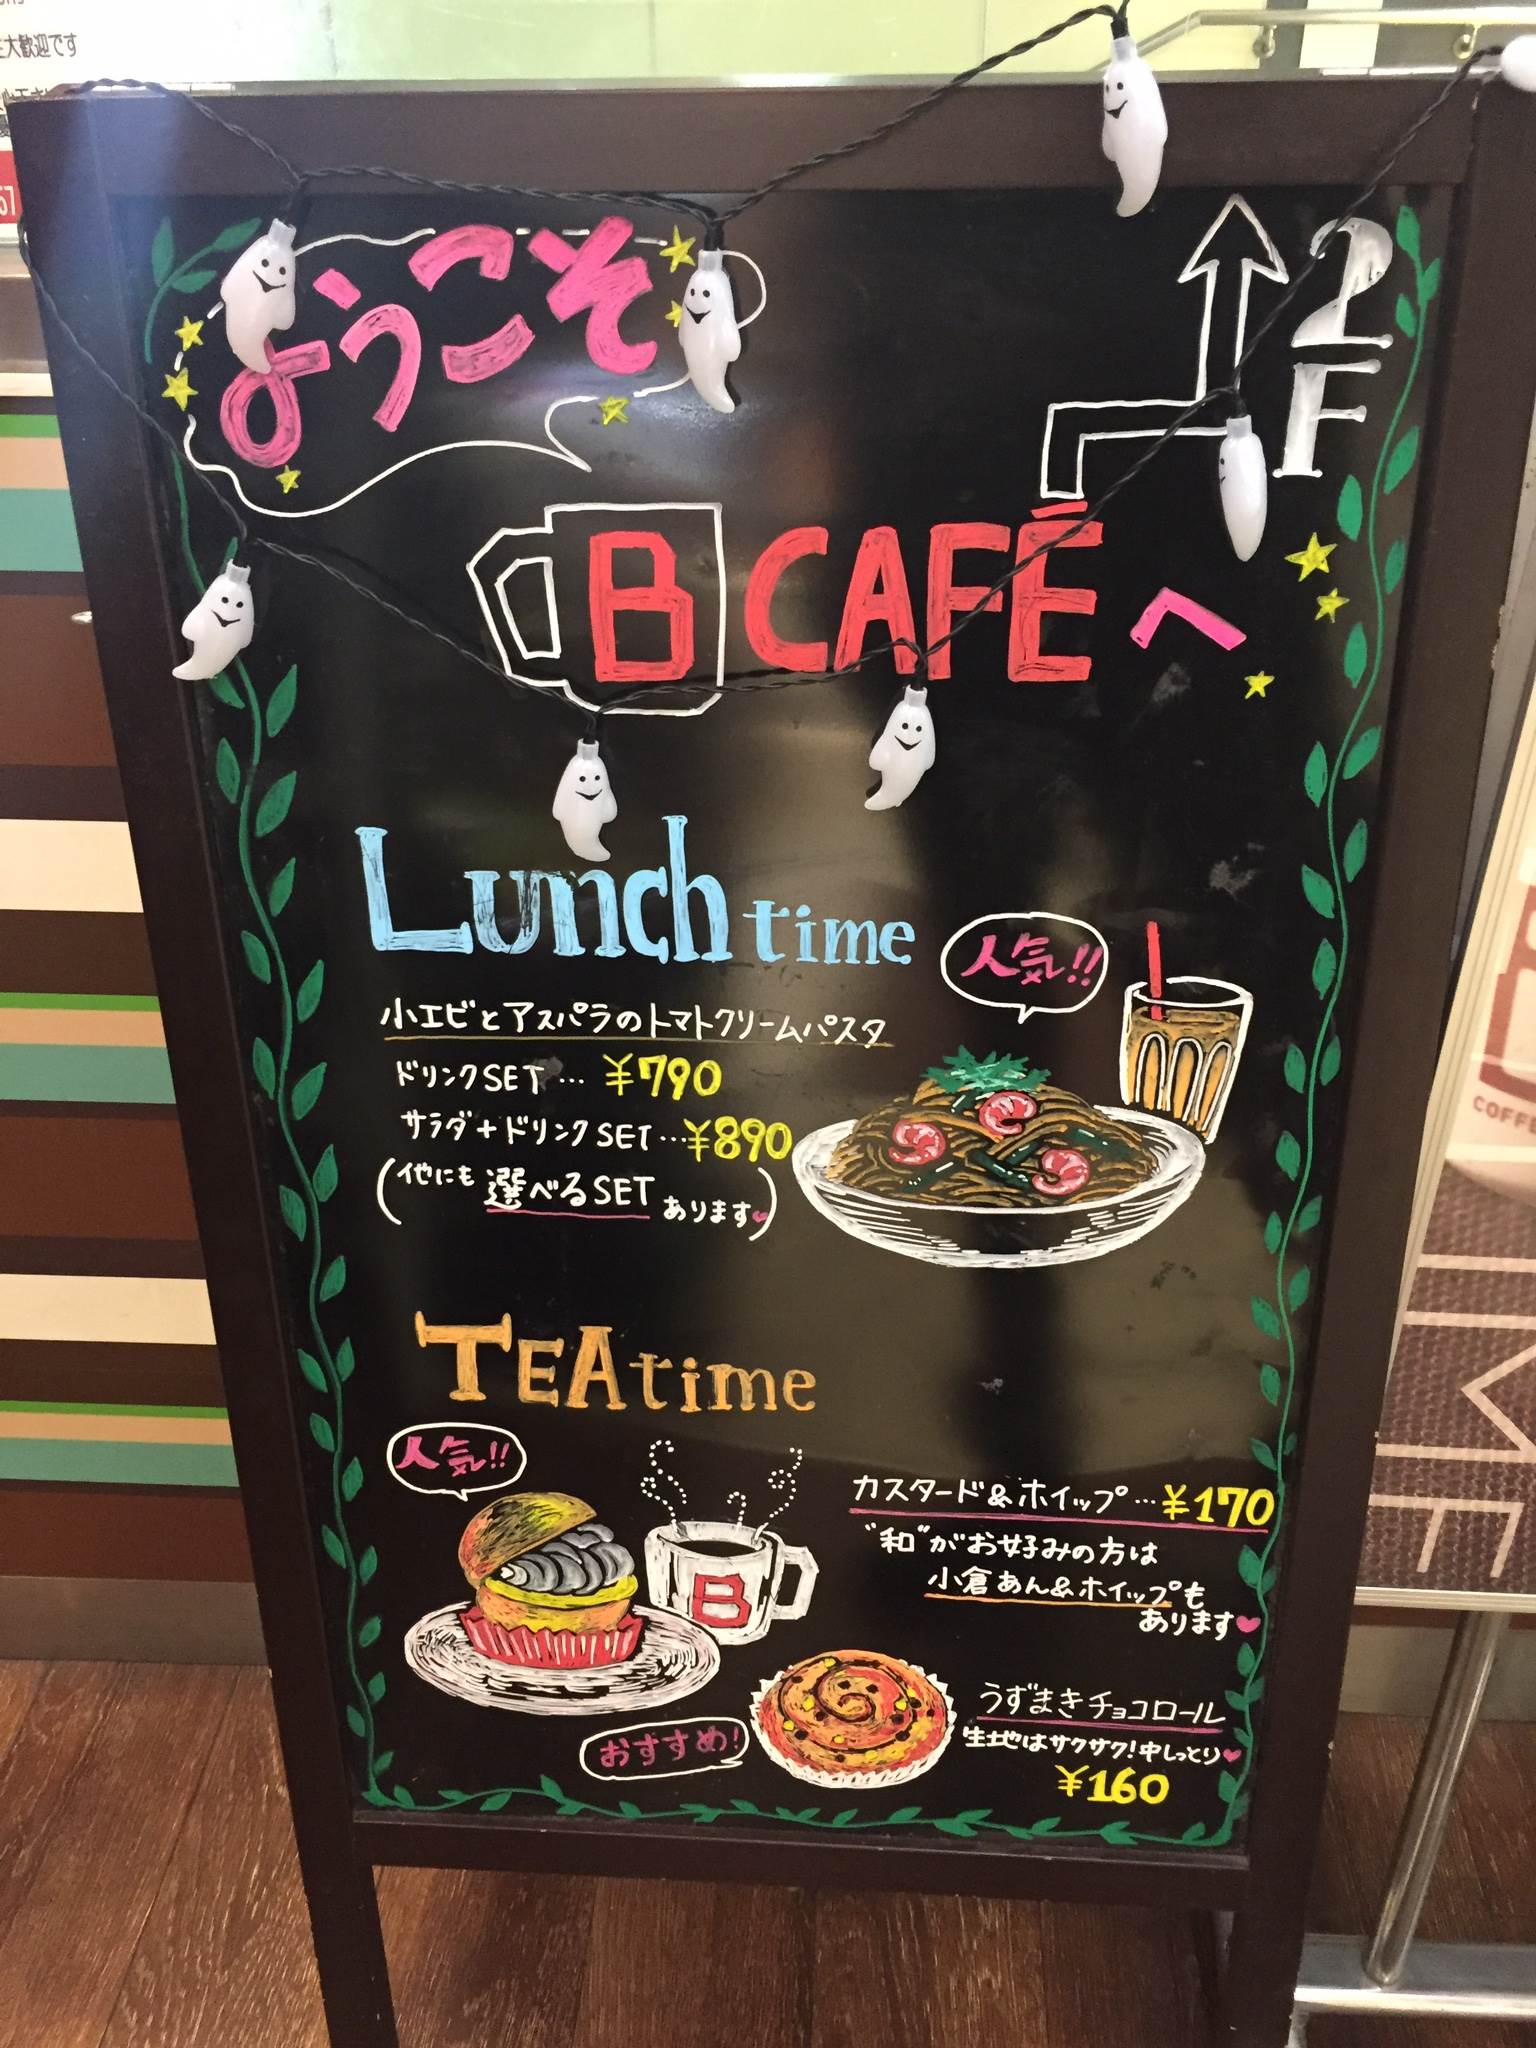 大歓迎です
ようこそ
2F
B CAFÉ へ
Lunch time
人気!!
小エビとアスパラのトマトクリームパスタ
ドリンクSET … ¥790
サラダ+ドリンクSET … ¥890
(他にも 選べるSET あります)
TEA time
人気!!
B
カスタード&ホイップ … ¥170
"和"がお好みの方は
小倉あん&ホイップも
あります
うずまきチョコロール
生地はサクサク!中しっとり
¥160
おすすめ!
COFFE